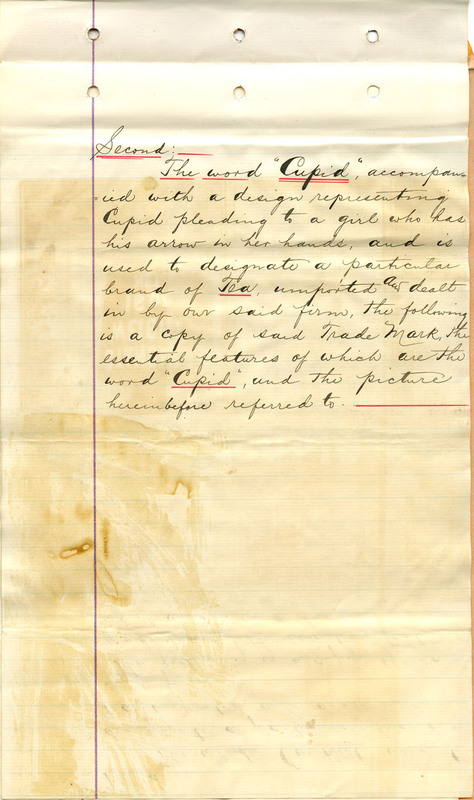 Second:
The word "Cupid", accompan-
ied with a design representing
Cupid pleading to a girl who has
his arrow in her hands, and is
used to designate a particular
brand of Tea, imported and dealt
in by our said firm, the following
is a copy of said Trade Mark, the
essential features of which are the
word "Cupid", and the picture
hereinbefore referred to.